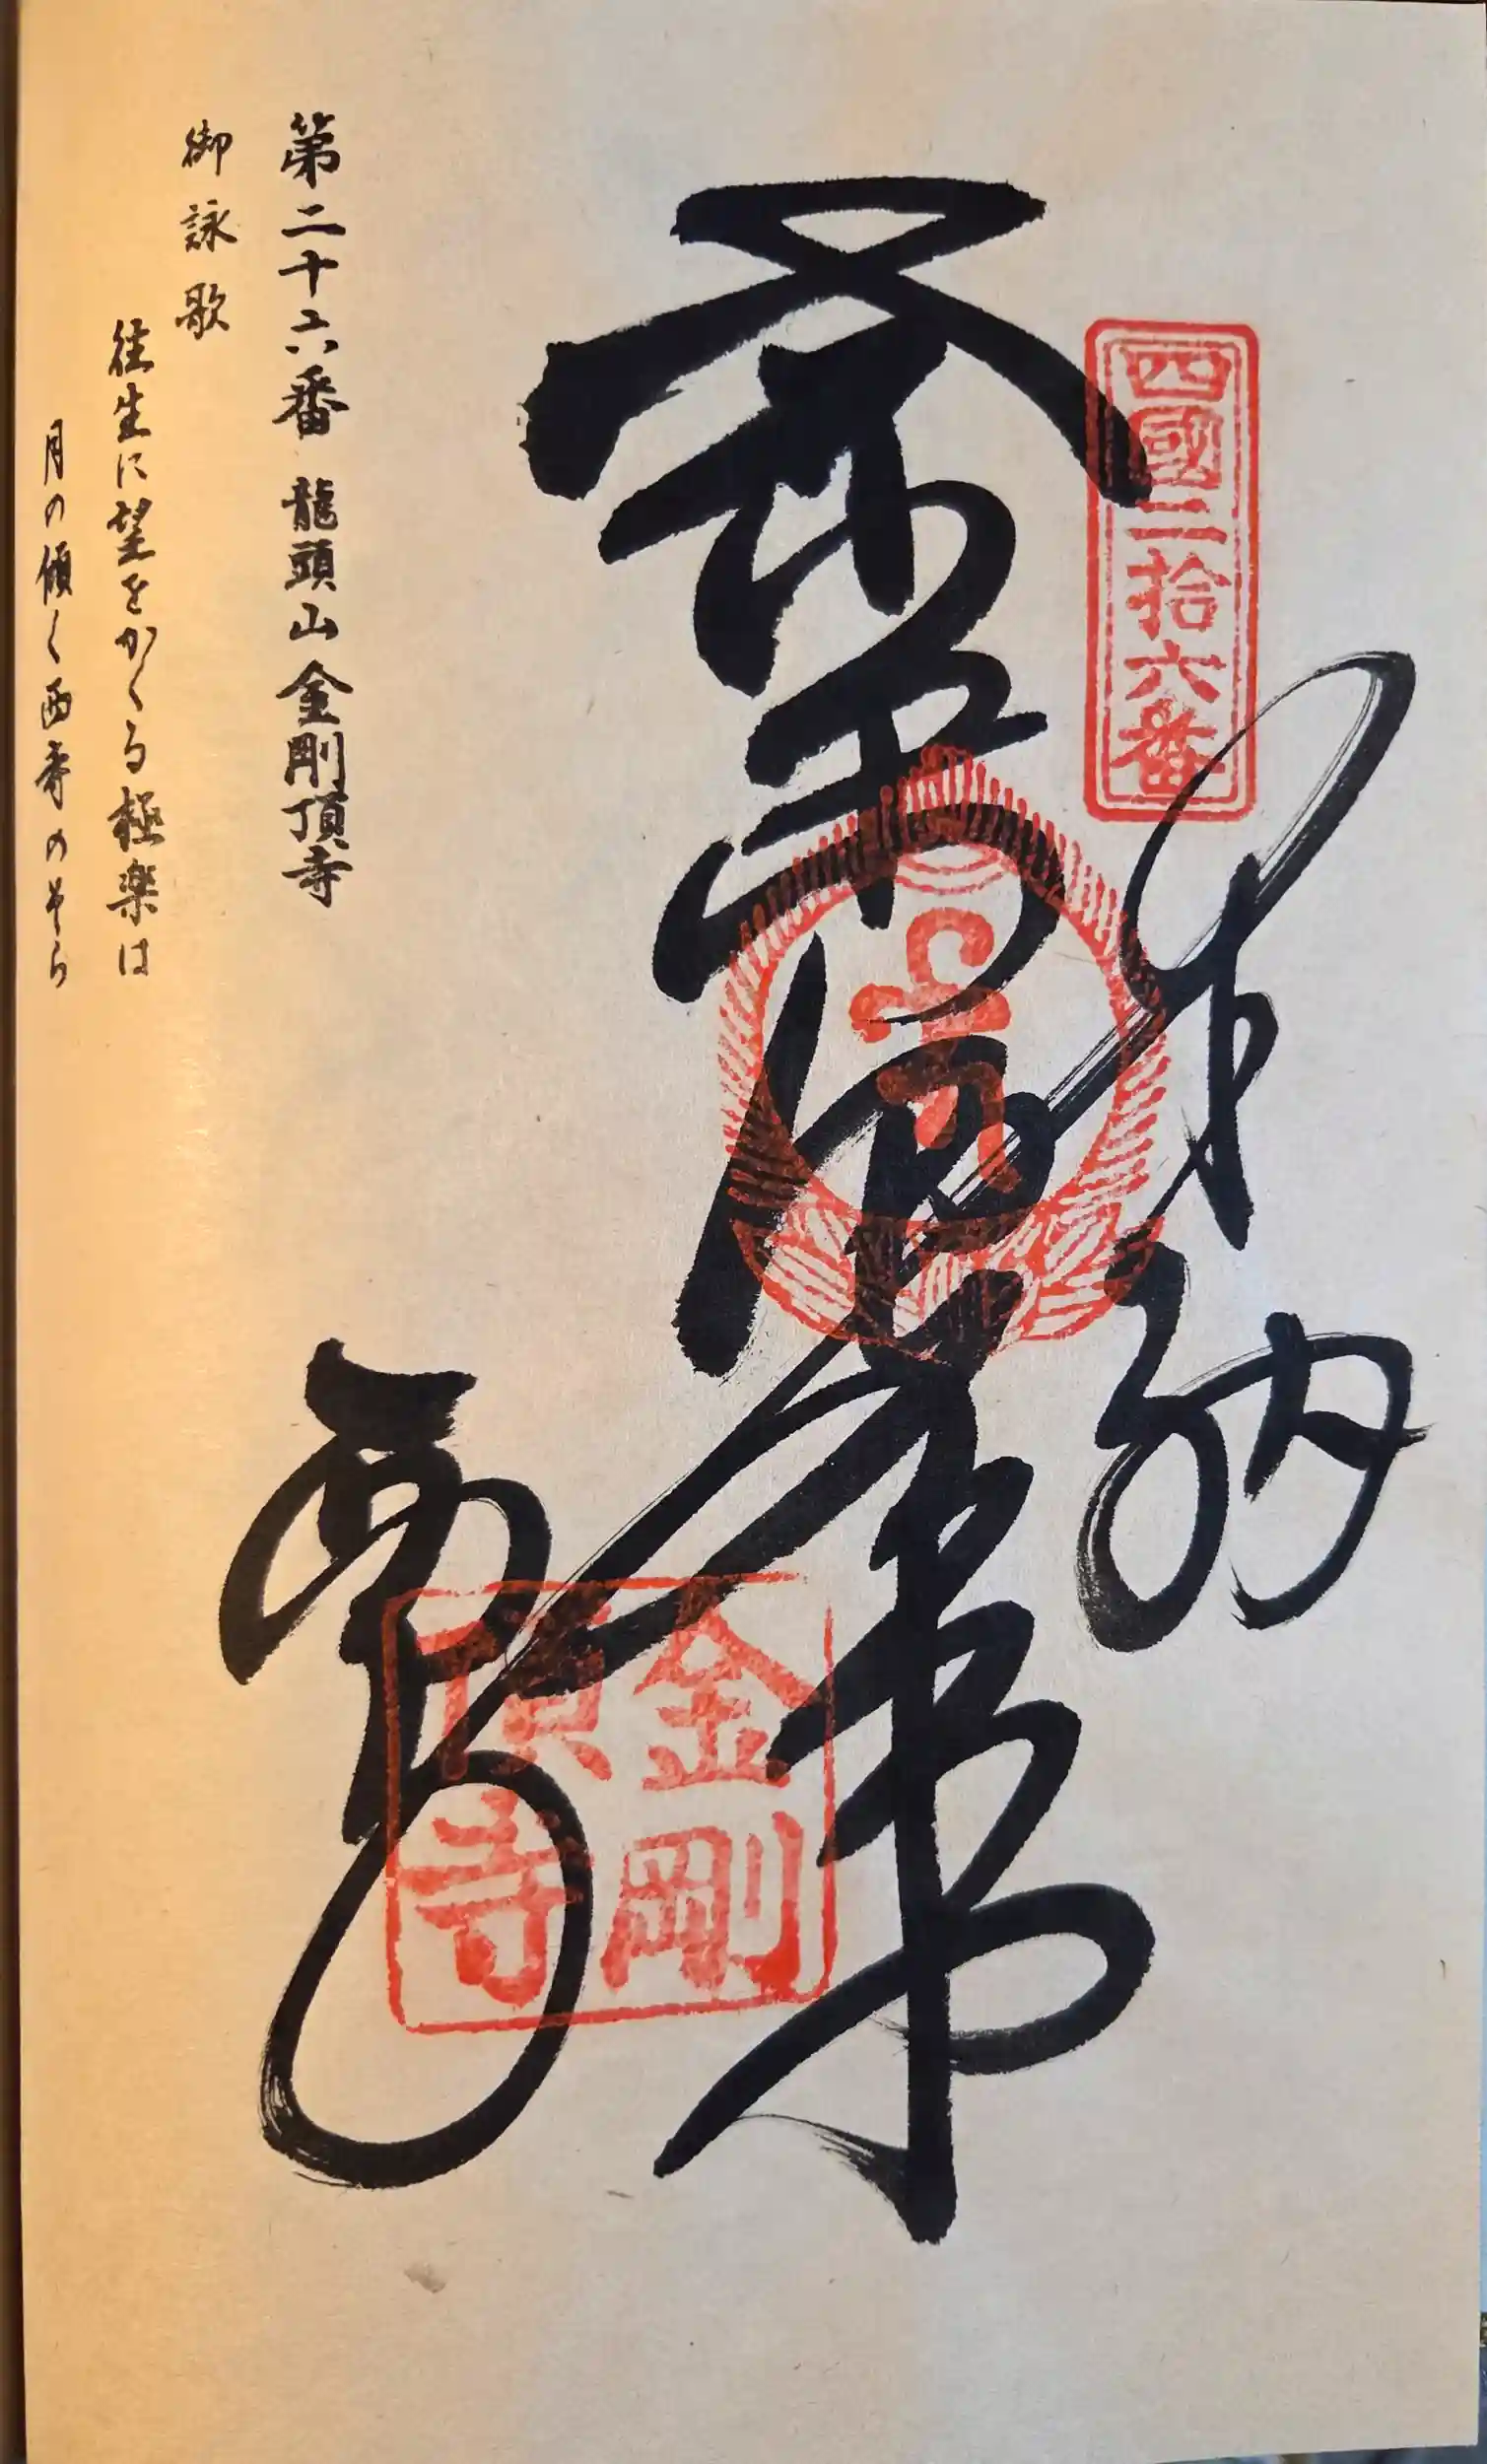 四國二拾六番
奉納
西寺
金剛
頂寺
第二十六番 龍頭山 金剛頂寺
御詠歌
往生に望をかくる極楽は
月の傾く西寺のそら